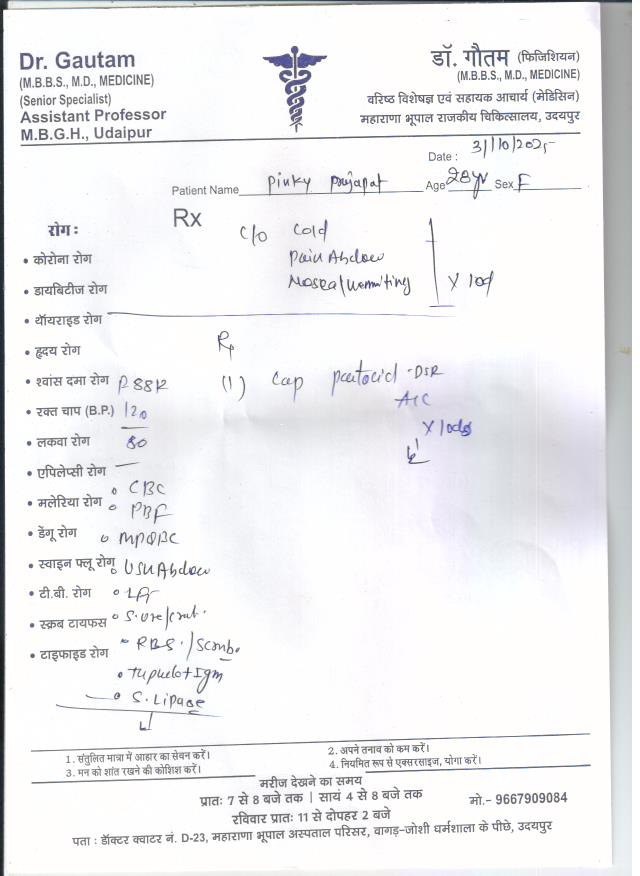 Dr. Gautam
(M.B.B.S., M.D., MEDICINE)
(Senior Specialist)
Assistant Professor
M.B.G.H., Udaipur
डॉ. गौतम (फिजिशियन)
(M.B.B.S., M.D., MEDICINE)
वरिष्ठ विशेषज्ञ एवं सहायक आचार्य (मेडिसिन)
महाराणा भूपाल राजकीय चिकित्सालय, उदयपुर
Date : 31/10/2025
Patient Name Pinky Prajapat Age 28 yr Sex F
Rx
c/o Cold
Pain Abdomen
/Vommiting x 10d
रोग :
• कोरोना रोग
• डायबिटीज रोग
• थॉयराइड रोग
• हृदय रोग
• श्वांस दमा रोग P 88
• रक्त चाप (B.P.) 120
• लकवा रोग 80
• एपिलेप्सी रोग
• मलेरिया रोग
• डेंगू रोग
• स्वाइन फ्लू रोग
• टी.बी. रोग
• स्क्रब टायफस
• टाइफाइड रोग
Rx
(1) Cap pantocid-DSR
A/C
x 10ds
• CBC
• PBF
• MPQBC
• USG Abdomen
• LFT
• RBS /
• Typhidot IgM
• S. Lipase
1. संतुलित मात्रा में आहार का सेवन करें।
2. अपने तनाव को कम करें।
3. मन को शांत रखने की कोशिश करें।
4. नियमित रूप से एक्सरसाइज, योगा करें।
मरीज देखने का समय
प्रातः 7 से 8 बजे तक | सायं 4 से 8 बजे तक
मो.- 9667909084
रविवार प्रातः 11 से दोपहर 2 बजे
पता : डॉक्टर क्वाटर नं. D-23, महाराणा भूपाल अस्पताल परिसर, वागड़-जोशी धर्मशाला के पीछे, उदयपुर